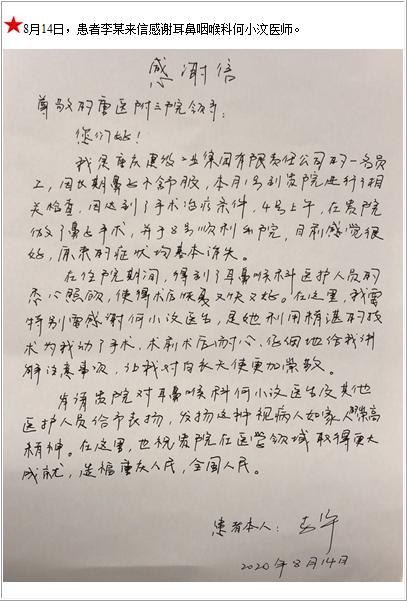 8月14日，患者李某来信感谢耳鼻咽喉科何小汶医师。
感谢信
尊敬的重医附三院领导：
您们好！
我是重庆建设工业集团有限责任公司的一名员
工，因长期鼻子不舒服，本月1号到贵院进行了相
关检查，因达到了手术治疗条件，4号上午，在贵院
做了鼻子手术，并于8号顺利出院，目前感觉很
好，原来的症状均基本消失。
在住院期间，得到了耳鼻喉科医护人员的
悉心照顾，使得术后恢复又快又好。在这里，我要
特别要感谢何小汶医生，是她利用精湛的技
术为我动了手术，术前术后耐心、仔细地给我讲
解注意事项，让我对白衣天使更加崇敬。
肯请贵院对耳鼻喉科何小汶医生及其他
医护人员给予表扬，发扬这种视病人如家人崇高
精神。在这里，也祝贵院在医学领域取得更大
成就，造福重庆人民，全国人民。
患者本人：
2020年8月14日